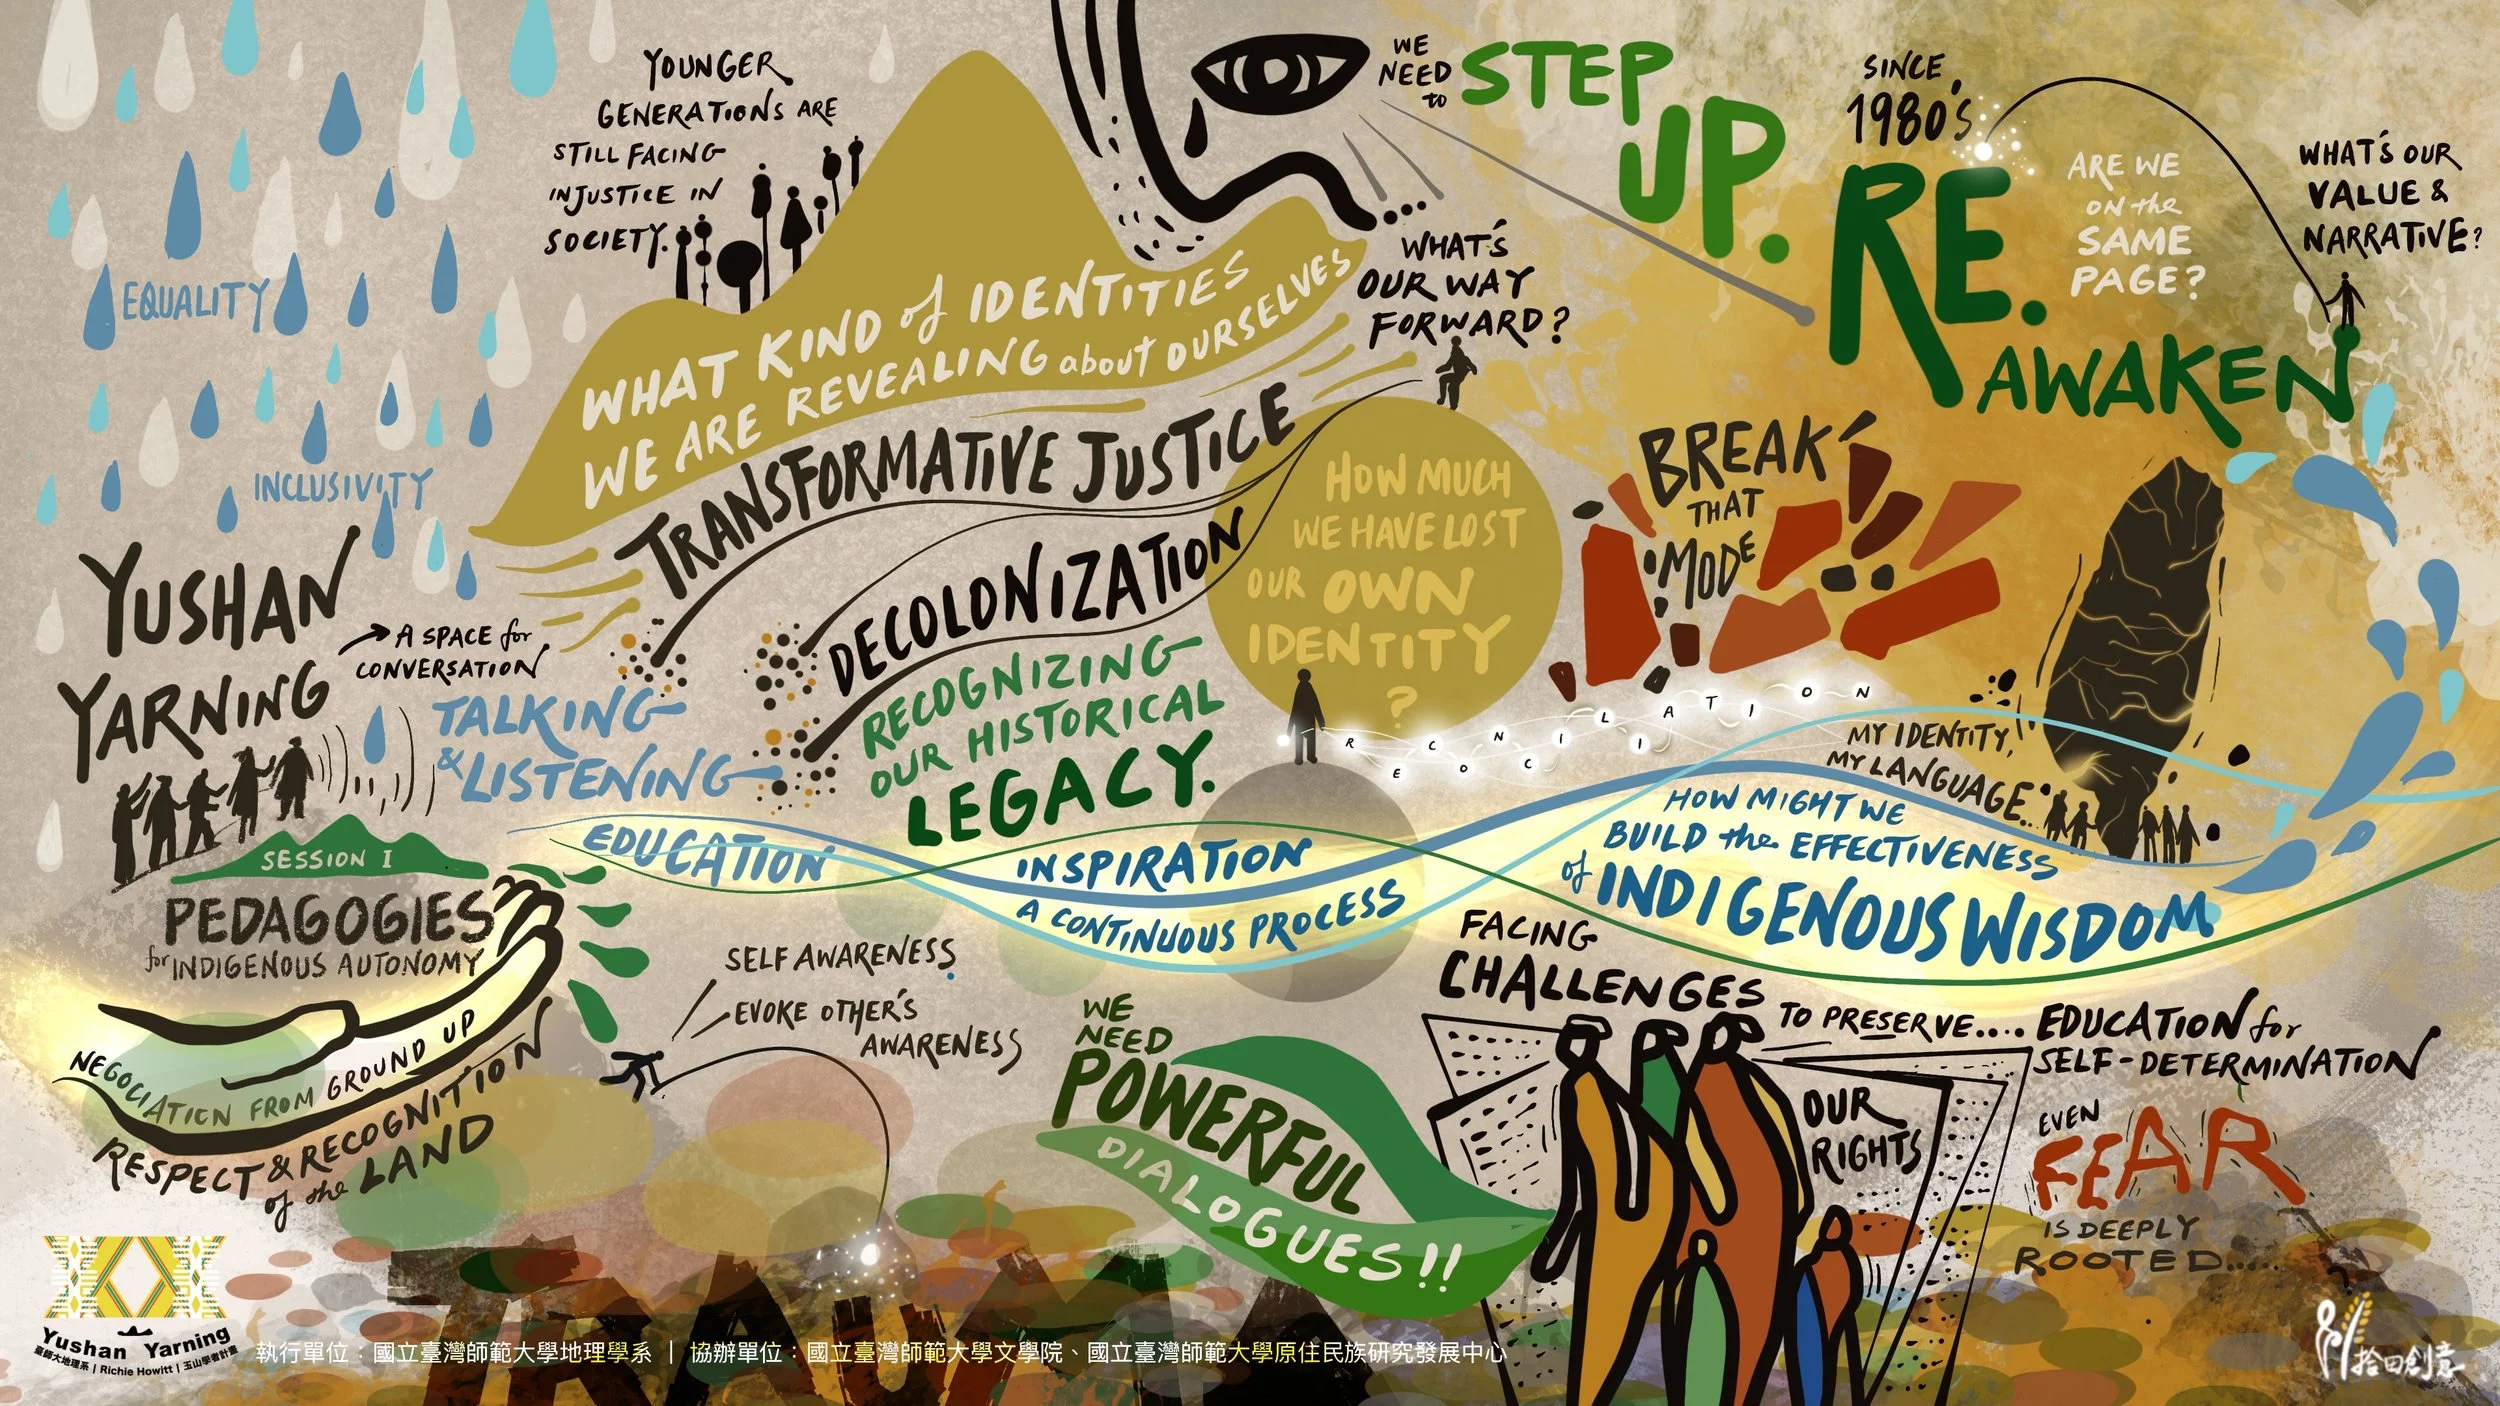 YOUNGER
GENERATIONS ARE
STILL FACING
INJUSTICE IN
SOCIETY.
EQUALITY
INCLUSIVITY
WHAT KIND of IDENTITIES
WE ARE REVEALING about OURSELVES
WE
NEED
to
STEP
UP.
SINCE
1980's
RE.
AWAKEN
ARE WE
ON the
SAME
PAGE?
WHAT'S OUR
VALUE &
NARRATIVE?
WHAT'S
OUR WAY
FORWARD?
TRANSFORMATIVE JUSTICE
DECOLONIZATION
RECOGNIZING
OUR HISTORICAL
LEGACY.
HOW MUCH
WE HAVE LOST
OUR OWN
IDENTITY
?
BREAK
THAT
MODE
RECONCILIATION
MY IDENTITY,
MY LANGUAGE..
YUSHAN
YARNING
A SPACE for
CONVERSATION
TALKING
& LISTENING
SESSION I
PEDAGOGIES
for INDIGENOUS AUTONOMY
NEGOCIATION FROM GROUND UP
RESPECT & RECOGNITION
of the LAND
EDUCATION
INSPIRATION
A CONTINUOUS PROCESS
HOW MIGHT WE
BUILD the EFFECTIVENESS
of INDIGENOUS WISDOM
SELF AWARENESS
EVOKE OTHER'S
AWARENESS
WE
NEED
POWERFUL
DIALOGUES!!
FACING
CHALLENGES
TO PRESERVE....
OUR
RIGHTS
EDUCATION for
SELF-DETERMINATION
EVEN
FEAR
IS DEEPLY
ROOTED.....
TRAUMA
Yushan Yarning
臺師大地理系 | Richie Howitt | 玉山學者計畫
執行單位：國立臺灣師範大學地理學系 | 協辦單位：國立臺灣師範大學文學院、國立臺灣師範大學原住民族研究發展中心
拾田創意